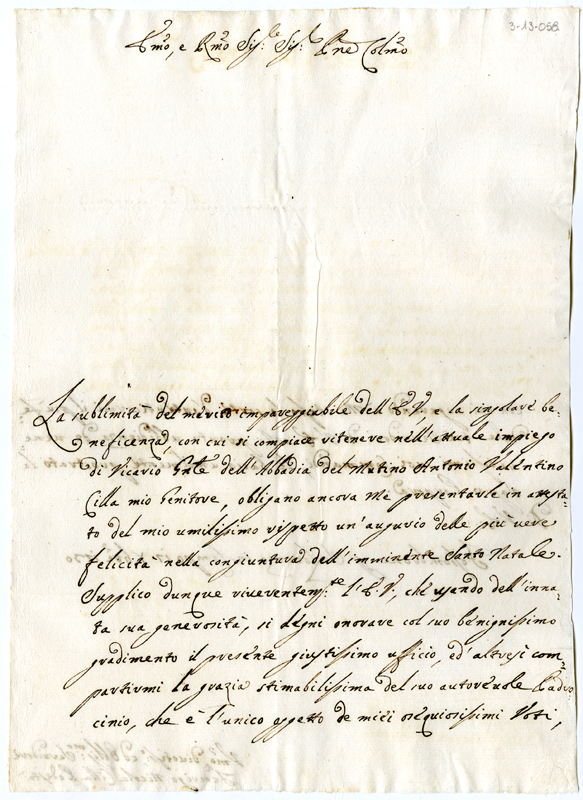 3-13-058
Emo, e Rmo Sig:e Sig:e Pne Colmo
La sublimità del merito impareggiabile dell'E.V., e la singolare be=
neficenza, con cui si compiace ritenere nell'attuale impiego
di Vicario Gnle dell'Abbadia del Mutino Antonio Valentino
Cilla mio Genitore, obligano ancora me presentarle in attesta=
to del mio umilissimo rispetto un'augurio delle più vere
felicità nella congiuntura dell'imminente Santo Natale.
Supplico dunque riverentem:te l'E.V., che usando dell'inna=
ta sua generosità, si degni onorare col suo benignissimo
gradimento il presente giustissimo ufficio, ed'altresì com=
partirmi la grazia stimabilissima del suo autorevole Padro
cinio, che è l'unico oggetto de miei osequiosissimi Voti,